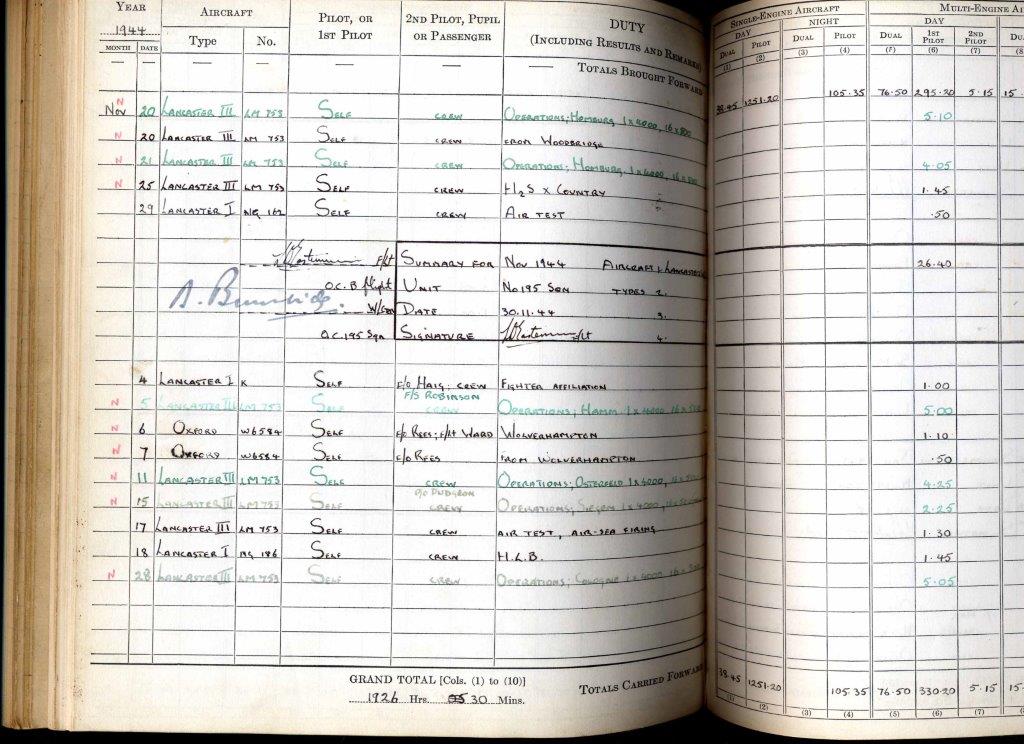 YEAR AIRCRAFT PILOT, OR 1ST PILOT 2ND PILOT, PUPIL OR PASSENGER DUTY (INCLUDING RESULTS AND REMARKS) SINGLE-ENGINE AIRCRAFT MULTI-ENGINE AI
1944 DAY NIGHT DAY
MONTH DATE Type No. DUAL PILOT DUAL PILOT DUAL 1ST PILOT 2ND PILOT DU
(1) (2) (3) (4) (5) (6) (7) (8
— — — — — — — TOTALS BROUGHT FORWARD 38.45 1251.20 105.35 76.50 295.20 5.15 15.
N Nov 20 LANCASTER III LM 753 SELF CREW OPERATIONS; HOMBURG 1 x 4000, 16 x 500 5.10
N 20 LANCASTER III LM 753 SELF CREW FROM WOODBRIDGE
N 21 LANCASTER III LM 753 SELF CREW OPERATIONS; HOMBURG 1 x 4000, 16 x 500 4.05
N 25 LANCASTER III LM 753 SELF CREW H2S X COUNTRY 1.45
29 LANCASTER I NG 162 SELF CREW AIR TEST .50
F/Lt SUMMARY FOR NOV 1944 AIRCRAFT 1. LANCASTER 26.40
O.C. B flight UNIT No 195 SQN TYPES 2.
W/Cdr DATE 30.11.44 3.
O.C. 195 Sqn SIGNATURE F/Lt 4.
4 LANCASTER I K SELF F/O HAIG; CREW FIGHTER AFFILIATION 1.00
F/S ROBINSON
N 5 LANCASTER III LM 753 SELF CREW OPERATIONS; HAMM 1 x 4000 16 x 500 5.00
N 6 OXFORD W6584 SELF F/O REES; F/Lt WARD WOLVERHAMPTON 1.10
N 7 OXFORD W6584 SELF F/O REES FROM WOLVERHAMPTON .50
N 11 LANCASTER III LM 753 SELF CREW OPERATIONS; OSTERFELD 1 x 4000, 4.25
P/O DUDGEON
N 15 LANCASTER III LM 753 SELF CREW OPERATIONS; SIEGEN 1 x 4000, 2.25
17 LANCASTER III LM 753 SELF CREW AIR TEST, AIR-SEA FIRING 1.30
18 LANCASTER I NG 186 SELF CREW H.L.B. 1.45
N 28 LANCASTER III LM 753 SELF CREW OPERATIONS; COLOGNE 1 x 4000, 16 x 500 5.05
GRAND TOTAL [Cols. (1) to (10)]
1926 Hrs. 30 Mins. TOTALS CARRIED FORWARD 38.45 1251.20 105.35 76.50 330.20 5.15 15.
(1) (2) (3) (4) (5) (6) (7) (8